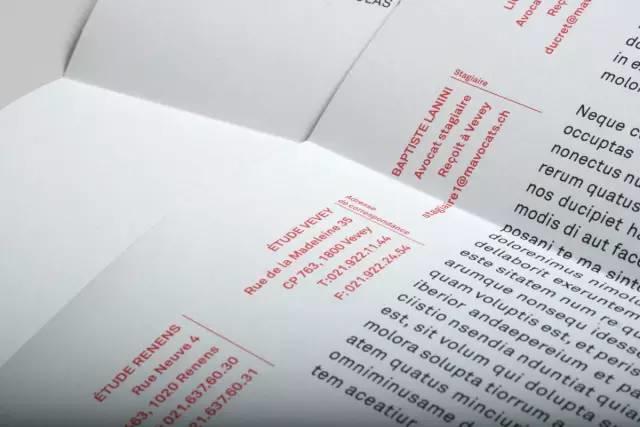 OLAS
Avocat
Reçoit
ducret@mavo
Stagiaire
BAPTISTE LANINI
Avocat stagiaire
Reçoit à Vevey
stagiaire1@mavocats.ch
Adresse
de correspondance
ÉTUDE VEVEY
Rue de la Madeleine 35
CP 763, 1800 Vevey
T:021.922.11.44
F:021.922.24.54
ÉTUDE RENENS
Rue Neuve 4
63, 1020 Renens
021.637.60.30
021.637.60.31
in e
molo
Neque c
occuptas
nonectus nu
rerum quatus
nos ducipiet ha
modis di aut face
posani te ma sint
dolorenimus nimod
dellaborit exeruntem
este sitatem num re q
arumque nonsequ idess
quam voluptis est, et peris
iberior andaepereium et p
ciistio nsendia nduntiat quia
est, sit volum qui dolupta s
molora solupta tiorrum a
atem quatus minciuri
omniminusame d
tem aceatiur